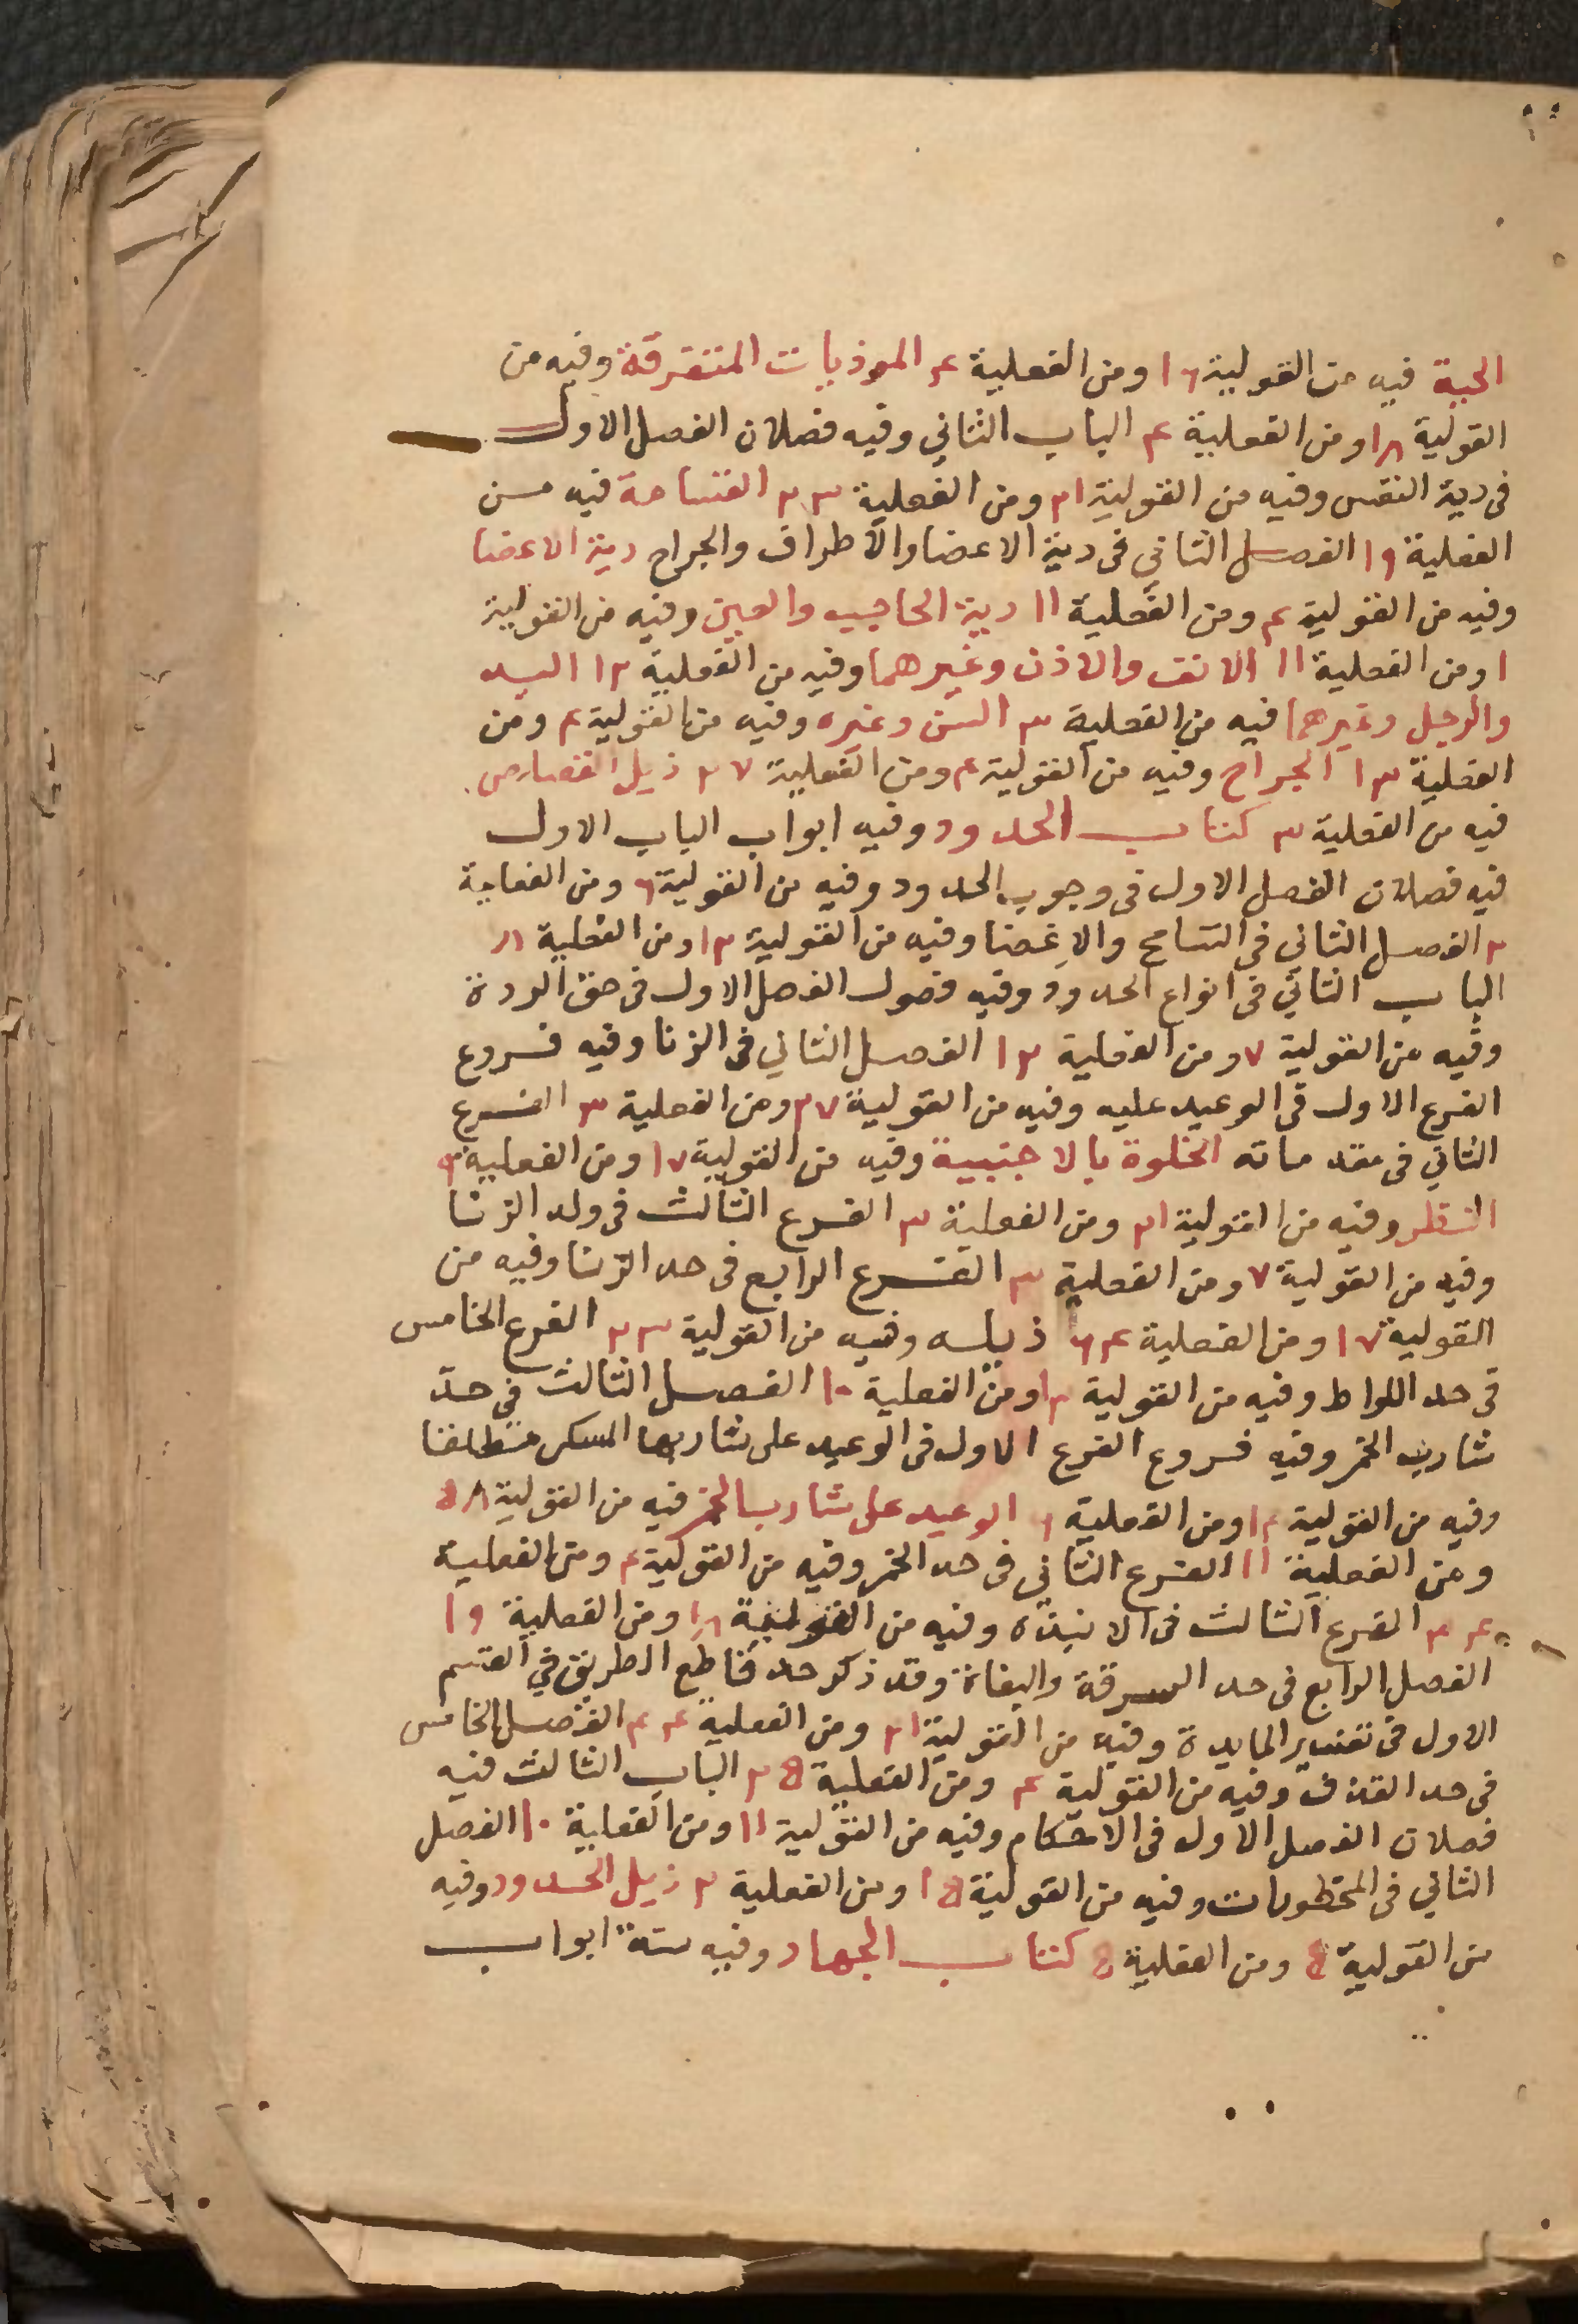 الحية فيه من القولية ١٦ ومن الفعلية ٤ الموذيات المتفرقة وفيه من
القولية ١٨ ومن الفعلية ٤ الباب الثاني وفيه فصلان الفصل الاول
فى دية النفس وفيه من القولية ٢١ ومن الفعلية ٢٣ القسامة فيه من
الفعلية ١٩ الفصل الثاني فى دية الاعضا والاطراف والجراح دية الاعضا
وفيه من القولية ٤ ومن الفعلية ١١ دية الحاجب والعين وفيه من القولية
١ ومن الفعلية ١١ الانف والاذن وغيرهما وفيه من الفعلية ١٢ اليد
والرجل وغيرهما فيه من الفعلية ٣ السن وغيره وفيه من القولية ٤ ومن
الفعلية ١٣ الجراح وفيه من القولية ٤ ومن الفعلية ٢٧ ذيل القصاص
فيه من الفعلية ٣ كتاب الحدود وفيه ابواب الباب الاول
فيه فصلان الفصل الاول فى وجوب الحدود وفيه من القولية ٦ ومن الفعلية
٢ الفصل الثاني فى التسامح والاغضا وفيه من القولية ١٢ ومن الفعلية ١٨
الباب الثاني فى انواع الحدود وفيه فصول الفصل الاول فى حق الردة
وفيه من القولية ٧ ومن الفعلية ١٢ الفصل الثاني فى الزنا وفيه فروع
الفرع الاول فى الوعيد عليه وفيه من القولية ٢٧ ومن الفعلية ٣ الفرع
الثاني فى مقدماته الخلوة بالاجنبية وفيه من القولية ١٧ ومن الفعلية ٣
النظر وفيه من القولية ٢١ ومن الفعلية ٣ الفرع الثالث فى ولد الزنا
وفيه من القولية ٧ ومن الفعلية ٣ الفرع الرابع فى حد الزنا وفيه من
القولية ١٧ ومن الفعلية ٦٤ ذيله وفيه من القولية ٢٣ الفرع الخامس
فى حد اللواط وفيه من القولية ١٢ ومن الفعلية ١٠ الفصل الثالث في حد
شارب الخمر وفيه فروع الفرع الاول فى الوعيد على شاربها المسكر مطلقا
وفيه من القولية ١٢ ومن الفعلية ٦ الوعيد على شارب الخمر فيه من القولية ٥٨
ومن الفعلية ١١ الفرع الثاني فى حد الخمر وفيه من القولية ٤ ومن الفعلية
٢٤ الفرع الثالث فى الانبذه وفيه من القولية ١٨ ومن الفعلية ١٩
الفصل الرابع فى حد السرقة والبغاة وقد ذكر حد قاطع الطريق في القسم
الاول فى تفسير المايدة وفيه من القولية ٢١ ومن الفعلية ٤٤ الفصل الخامس
فى حد القذف وفيه من القولية ٤ ومن الفعلية ٢٥ الباب الثالث فيه
فصلان الفصل الاول فى الاحكام وفيه من القولية ١١ ومن الفعلية ١٠ الفصل
الثاني فى المحظورات وفيه من القولية ١٥ ومن الفعلية ٢ ذيل الحدود وفيه
من القولية ٥ ومن الفعلية ٥ كتاب الجهاد وفيه ستة ابواب